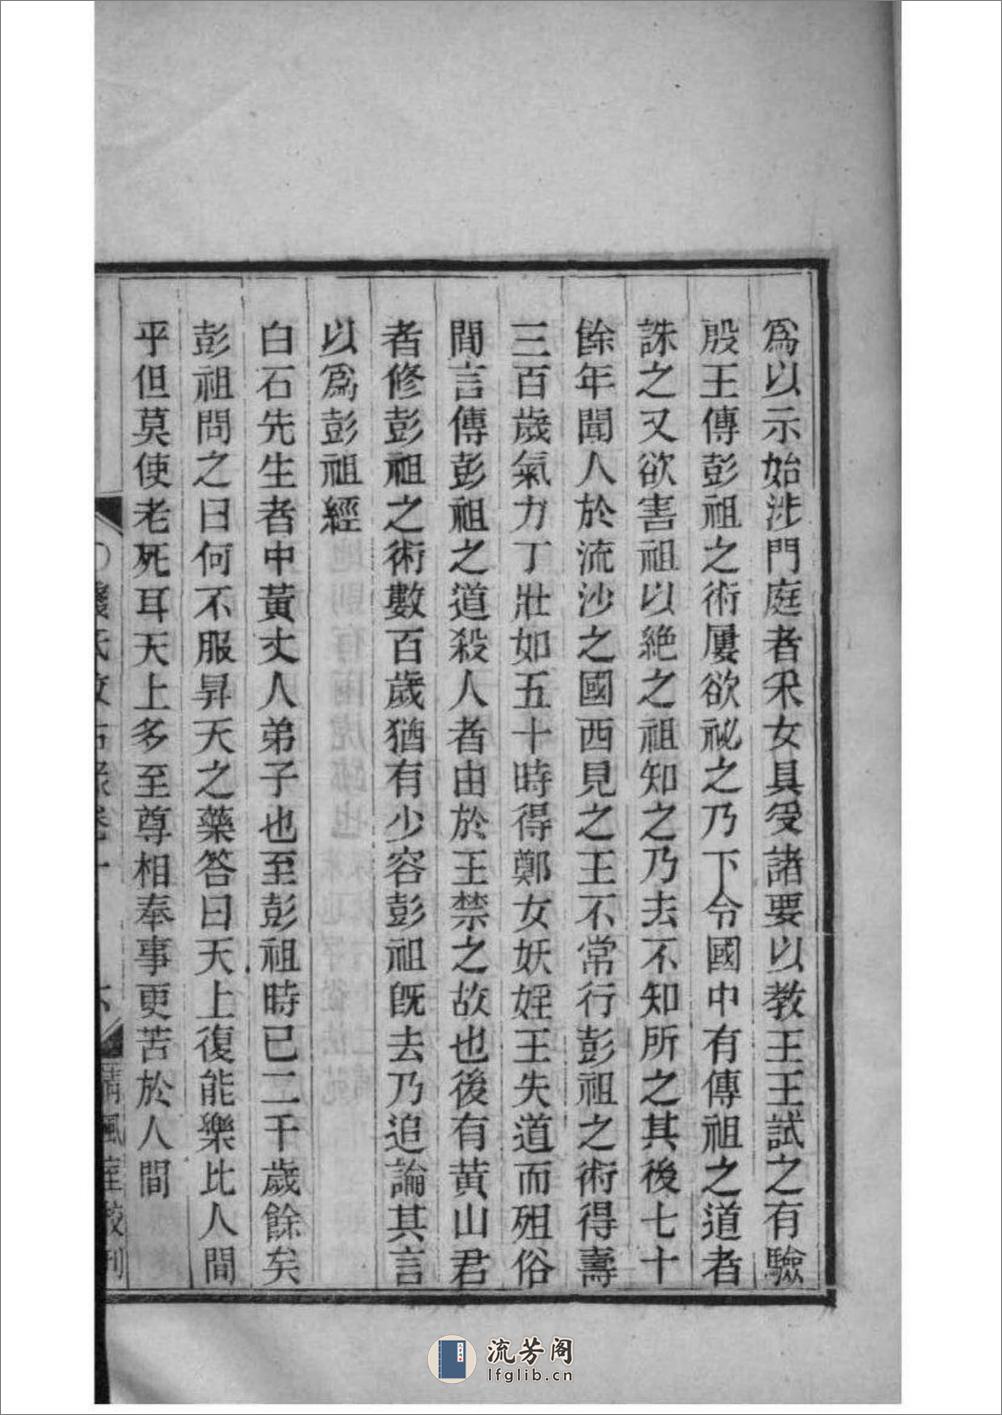 爲以示始涉門庭者采女具受諸要以教王王試之有驗
殷王傳彭祖之術屢欲祕之乃下令國中有傳祖之道者
誅之又欲害祖以絶之祖知之乃去不知所之其後七十
餘年聞人於流沙之國西見之王不常行彭祖之術得壽
三百歲氣力丁壯如五十時得鄭女妖婬王失道而殂俗
間言傳彭祖之道殺人者由於王禁之故也後有黃山君
者修彭祖之術數百歲猶有少容彭祖既去乃追論其言
以爲彭祖經
白石先生者中黃丈人弟子也至彭祖時已二千歲餘矣
彭祖問之曰何不服昇天之藥答曰天上復能樂比人間
乎但莫使老死耳天上多至尊相奉事更苦於人間
清風室校刊
流芳阁
lfglib.cn